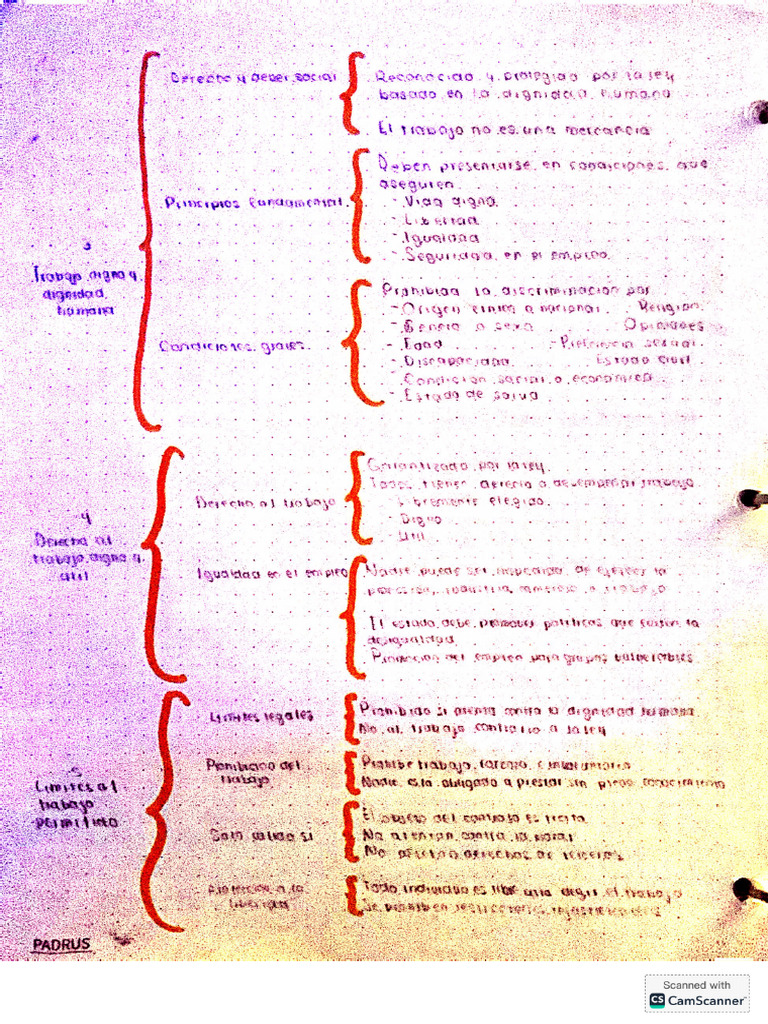 Derecho y deber social
Reconocido y protegido por la ley
basado en la dignidad humana
El trabajo no es una mercancia
Principios fundamental
Deben presentarse en condiciones que
aseguren
- Vida digna
- Libertad
- Igualdad
- Seguridad en el empleo
3
Trabajo digno y
dignidad
humana
Condiciones grales
Prohibida la discriminación por
- Origen etnico o nacional - Religion
- Genero o sexo Opiniones
- Edad - Preferencia sexual
- Discapacidad Estado civil
- Condicion social o economica
- Estado de salud
4
Derecho al
trabajo digno y
util
Derecho al trabajo
Garantizado por la ley
Todos tienen derecho a desempeñar trabajo
libremente elegido
- Digno
- Util
Igualdad en el empleo
Nadie puede ser impedido de ejercer la
profesion, industria comercio o trabajo
El estado debe promover politicas que eviten la
desigualdad
Promocion del empleo para grupos vulnerables
5
Limites al
trabajo
permitido
Limites legales
Prohibido si atenta contra la dignidad humana
No al trabajo contrario a la ley
Prohibicion del
trabajo
Prohibe trabajo forzoso
Nadie está obligado a prestar sin pleno conocimiento
Solo valido si
El objeto del contrato es licito
No atentan contra la moral
No afectan derechos de terceros
Proteccion a la
libertad
Todo individuo es libre elegir el trabajo
Se prohiben restricciones
PADRUS
Scanned with
CS CamScanner